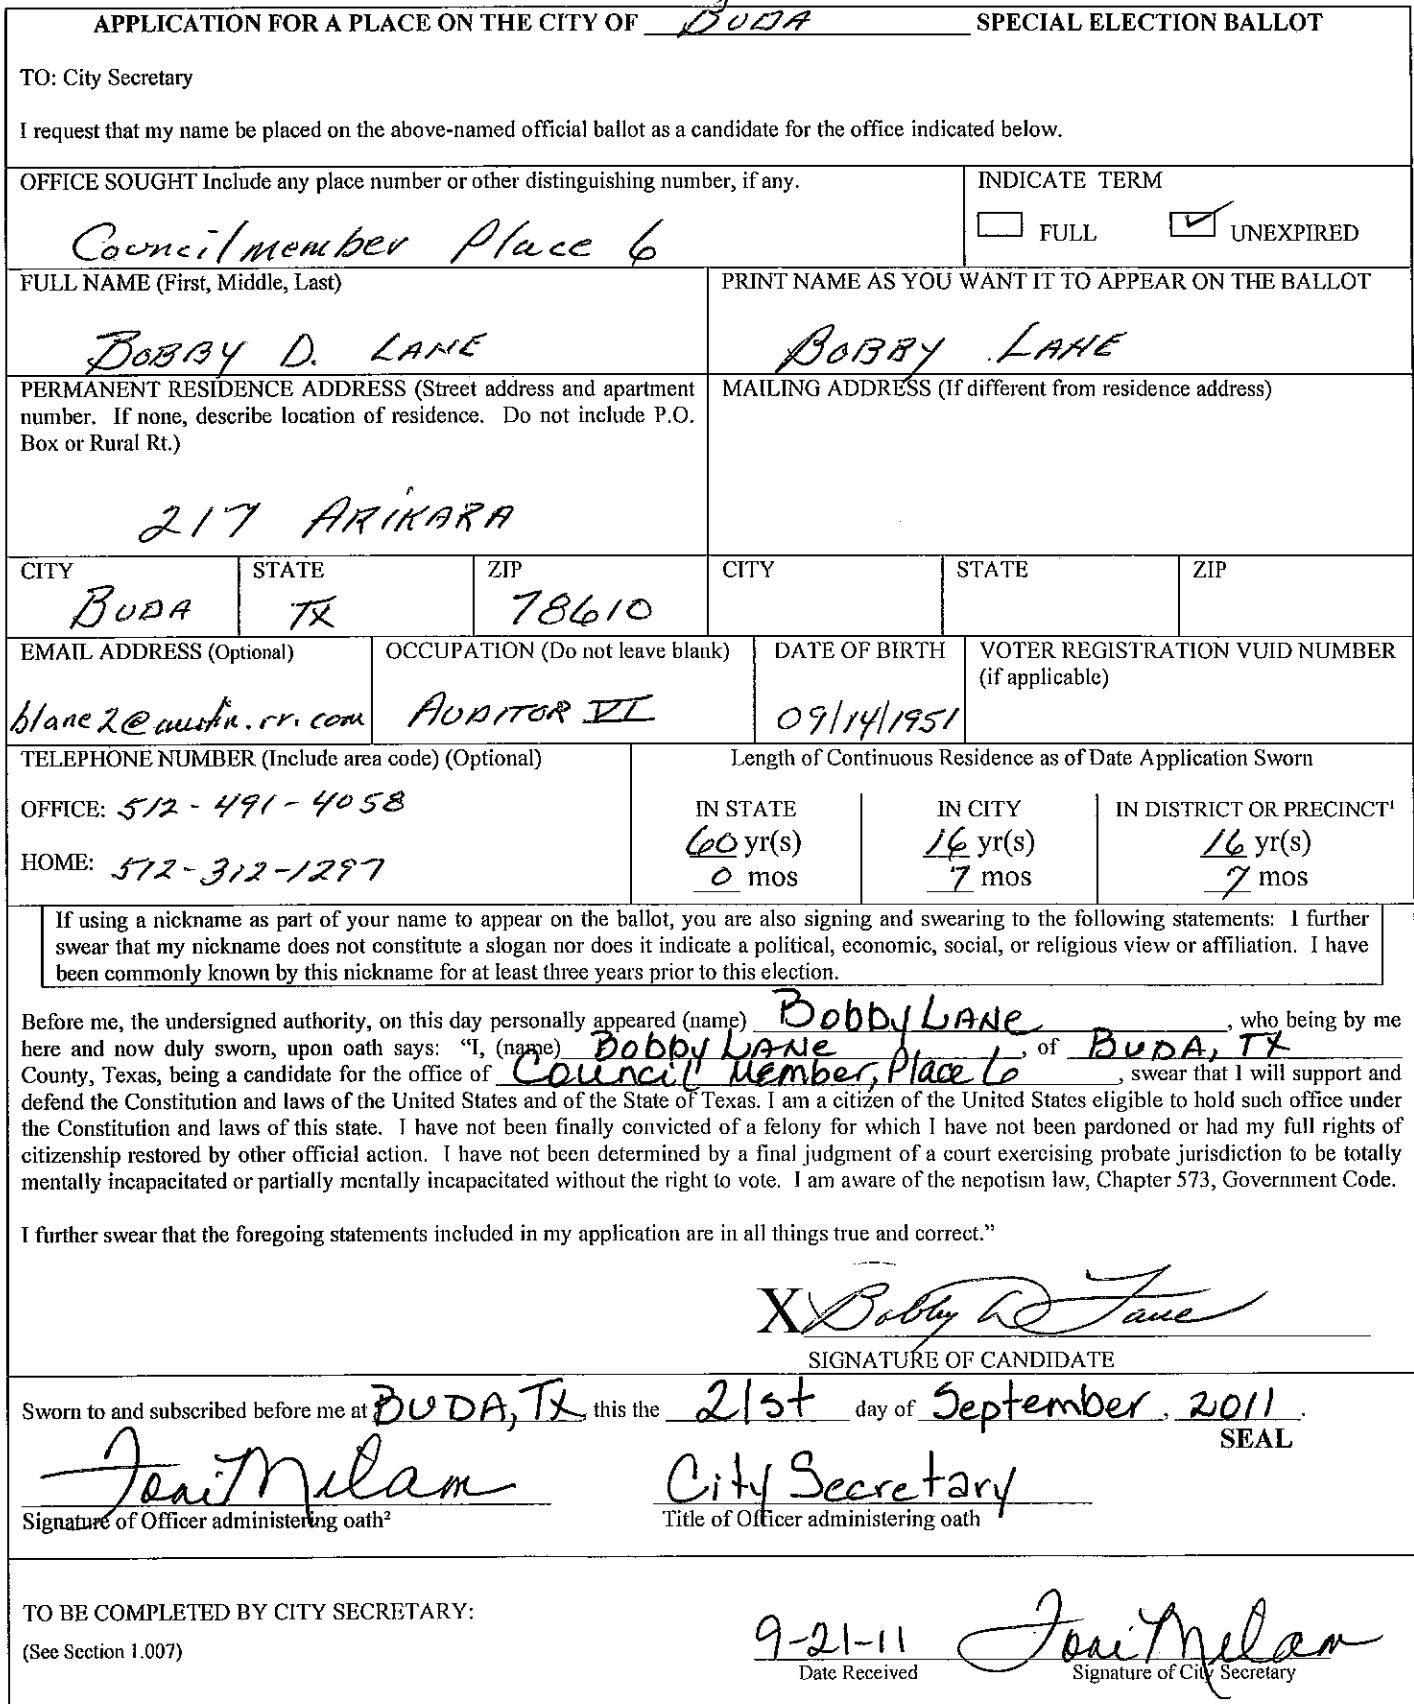 APPLICATION FOR A PLACE ON THE CITY OF BUDA SPECIAL ELECTION BALLOT
TO: City Secretary
I request that my name be placed on the above-named official ballot as a candidate for the office indicated below.
OFFICE SOUGHT Include any place number or other distinguishing number, if any.
Councilmember Place 6
INDICATE TERM
FULL UNEXPIRED
FULL NAME (First, Middle, Last)
BOBBY D. LANE
PRINT NAME AS YOU WANT IT TO APPEAR ON THE BALLOT
BOBBY LANE
PERMANENT RESIDENCE ADDRESS (Street address and apartment
number. If none, describe location of residence. Do not include P.O.
Box or Rural Rt.)
217 ARIKARA
MAILING ADDRESS (If different from residence address)
CITY STATE ZIP CITY STATE ZIP
BUDA TX 78610
EMAIL ADDRESS (Optional)
blane2@austin.rr.com
OCCUPATION (Do not leave blank)
AUDITOR VI
DATE OF BIRTH
09/14/1951
VOTER REGISTRATION VUID NUMBER
(if applicable)
TELEPHONE NUMBER (Include area code) (Optional)
OFFICE: 512-491-4058
HOME: 512-312-1297
Length of Continuous Residence as of Date Application Sworn
IN STATE IN CITY IN DISTRICT OR PRECINCT¹
60 yr(s) 16 yr(s) 16 yr(s)
0 mos 7 mos 7 mos
If using a nickname as part of your name to appear on the ballot, you are also signing and swearing to the following statements: I further
swear that my nickname does not constitute a slogan nor does it indicate a political, economic, social, or religious view or affiliation. I have
been commonly known by this nickname for at least three years prior to this election.
Before me, the undersigned authority, on this day personally appeared (name) Bobby LANe, who being by me
here and now duly sworn, upon oath says: “I, (name) Bobby LANe, of BUDA, TX
County, Texas, being a candidate for the office of Council Member, Place 6, swear that I will support and
defend the Constitution and laws of the United States and of the State of Texas. I am a citizen of the United States eligible to hold such office under
the Constitution and laws of this state. I have not been finally convicted of a felony for which I have not been pardoned or had my full rights of
citizenship restored by other official action. I have not been determined by a final judgment of a court exercising probate jurisdiction to be totally
mentally incapacitated or partially mentally incapacitated without the right to vote. I am aware of the nepotism law, Chapter 573, Government Code.
I further swear that the foregoing statements included in my application are in all things true and correct.”
X Bobby D Lane
SIGNATURE OF CANDIDATE
Sworn to and subscribed before me at BUDA, TX, this the 21st day of September, 2011.
SEAL
Toni Milam City Secretary
Signature of Officer administering oath² Title of Officer administering oath
TO BE COMPLETED BY CITY SECRETARY:
(See Section 1.007)
9-21-11 Toni Milam
Date Received Signature of City Secretary